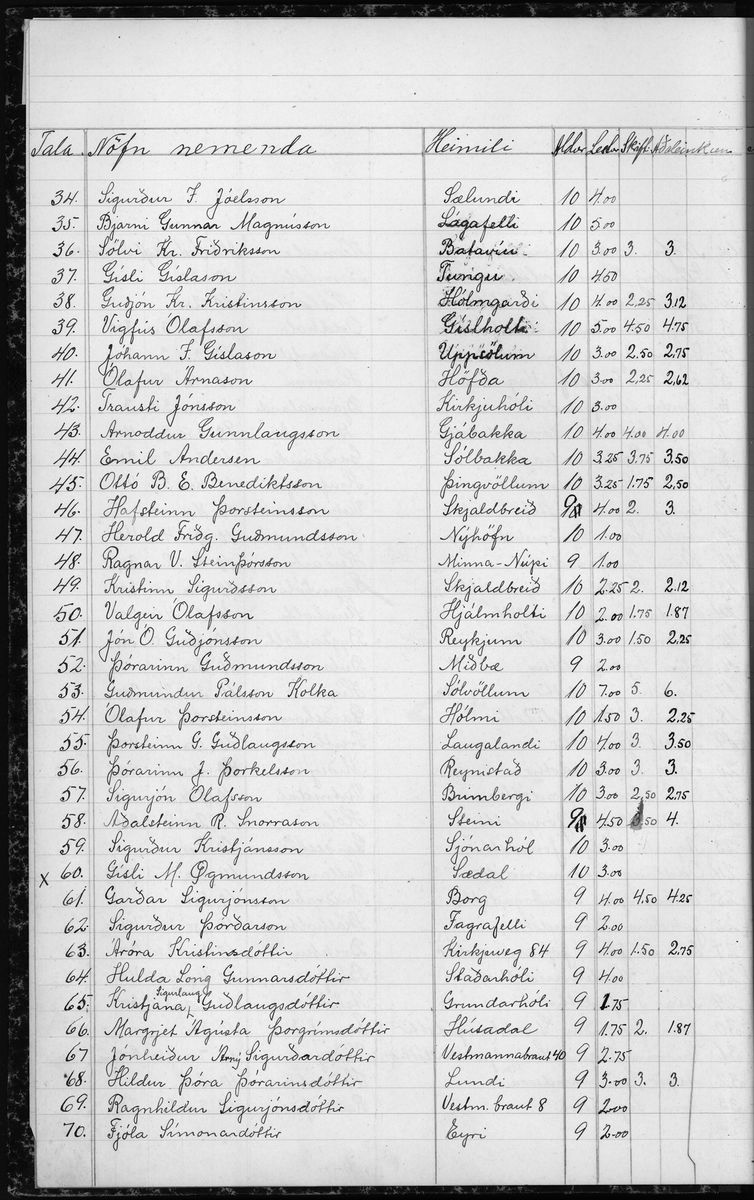 Tala. Nöfn nemenda Heimili Aldur Lestur Skift Aðaleink
34. Sigurður F. Jóelsson Sælundi 10 4.00
35. Bjarni Gunnar Magnússon Lágafelli 10 5.00
36. Sölvi Kr. Friðriksson Batavíu 10 3.00 3. 3.
37. Gísli Gíslason Tungu 10 4.50
38. Guðjón Kr. Kristinsson Hólmgarði 10 4.00 2.25 3.12
39. Vigfús Ólafsson Gíslholti 10 5.00 4.50 4.75
40. Jóhann F. Gíslason Uppsölum 10 3.00 2.50 2.75
41. Ólafur Árnason Höfða 10 3.00 2.25 2.62
42. Trausti Jónsson Kirkjuhóli 10 3.00
43. Arnoddur Gunnlaugsson Gjábakka 10 4.00 4.00 4.00
44. Emil Andersen Sólbakka 10 3.25 3.75 3.50
45. Ottó B. E. Benediktsson Þingvöllum 10 3.25 1.75 2.50
46. Hafsteinn Þorsteinsson Skjaldbreið 9 4.00 2. 3.
47. Herold Friðg. Guðmundsson Nýhöfn 10 1.00
48. Ragnar V. Steinþórsson Minna-Núpi 9 1.00
49. Kristinn Sigurðsson Skjaldbreið 10 2.25 2. 2.12
50. Valgeir Ólafsson Hjálmholti 10 2.00 1.75 1.87
51. Jón Ó. Guðjónsson Reykjum 10 3.00 1.50 2.25
52. Þórarinn Guðmundsson Miðbæ 9 2.00
53. Guðmundur Pálsson Kolka Sólvöllum 10 7.00 5. 6.
54. Ólafur Þorsteinsson Hólmi 10 1.50 3. 2.25
55. Þorsteinn G. Guðlaugsson Laugalandi 10 4.00 3. 3.50
56. Þórarinn J. Þorkelsson Reynistað 10 3.00 3. 3.
57. Sigurjón Ólafsson Brimbergi 10 3.00 2.50 2.75
58. Aðalsteinn R. Snorrason Steini 9 4.50 3.50 4.
59. Sigurður Kristjánsson Sjónarhól 10 3.00
x 60. Gísli M. Øgmundsson Sædal 10 3.00
61. Garðar Sigurjónsson Borg 9 4.00 4.50 4.25
62. Sigurður Þórðarson Fagrafelli 9 2.00
63. Áróra Kristinsdóttir Kirkjuveg 84 9 4.00 1.50 2.75
64. Hulda Long Gunnarsdóttir Staðarhóli 9 4.00
65. Kristjana Sigurlaug Guðlaugsdóttir Grundarhóli 9 1.75
66. Margrjet Ágústa Þorgrímsdóttir Húsadal 9 1.75 2. 1.87
67 Jónheiður Árný Sigurðardóttir Vestmannabraut 40 9 2.75
68. Hildur Þóra Þórarinsdóttir Lundi 9 3.00 3. 3.
69. Ragnhildur Sigurjónsdóttir Vestm. braut 8 9 2.00
70. Fjóla Símonardóttir Eyri 9 2.00